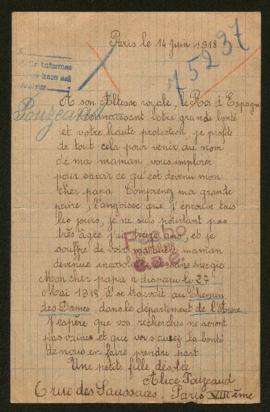 Paris le 14 Juin 1918
75237
A son Altesse royale, le Roi d'Espagne
Pouzeaud
connaissant votre grande bonté
et votre haute protection je profite
de tout cela pour venir au nom
de ma maman vous implorer
pour savoir ce qu'est devenu mon
cher papa. Comprenez ma grande
peine, l'angoisse que j'éprouve tous
les jours, je ne suis pourtant pas
très âgée j'ai treize ans, et je
souffre de voir ma maman
devenue
Mon cher papa a disparu le 27
Mai 1918, il se trouvait au Chemin
des Dames, dans le département de l'Aisne
J'espère que vos recherches ne seront
pas vaines et que vous aurez la bonté
de nous en faire prendre part
Une petite fille désolée
Alice Pouzeaud
rue des Saussaies, Paris VIIIème